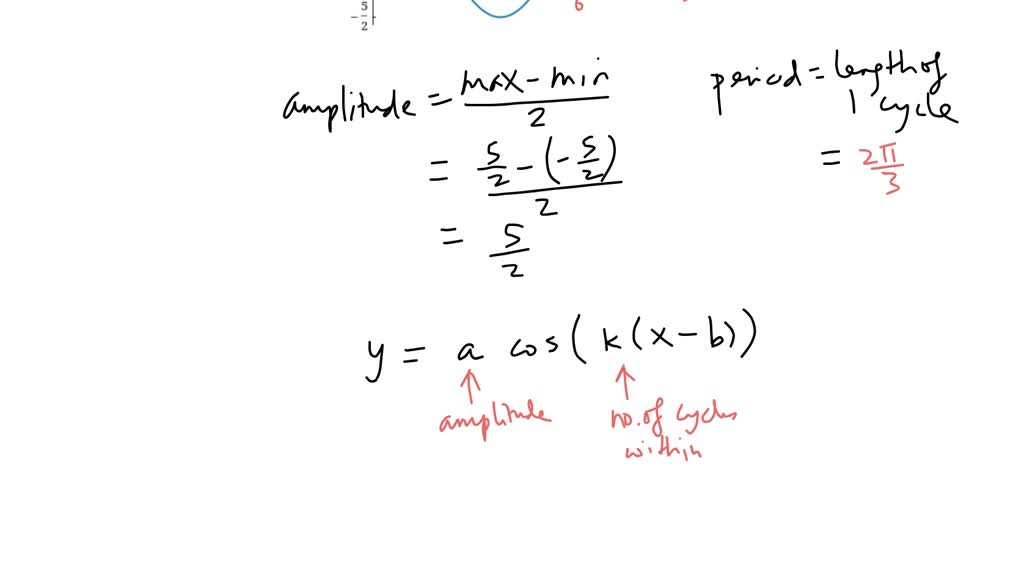 -5/2
6
amplitude = max - min / 2
period = length of 1 cycle
= 5/2 - (-5/2) / 2
= 2π/3
= 5/2
y = a cos(k(x-b))
↑ ↑
amplitude
no. of cycles
within